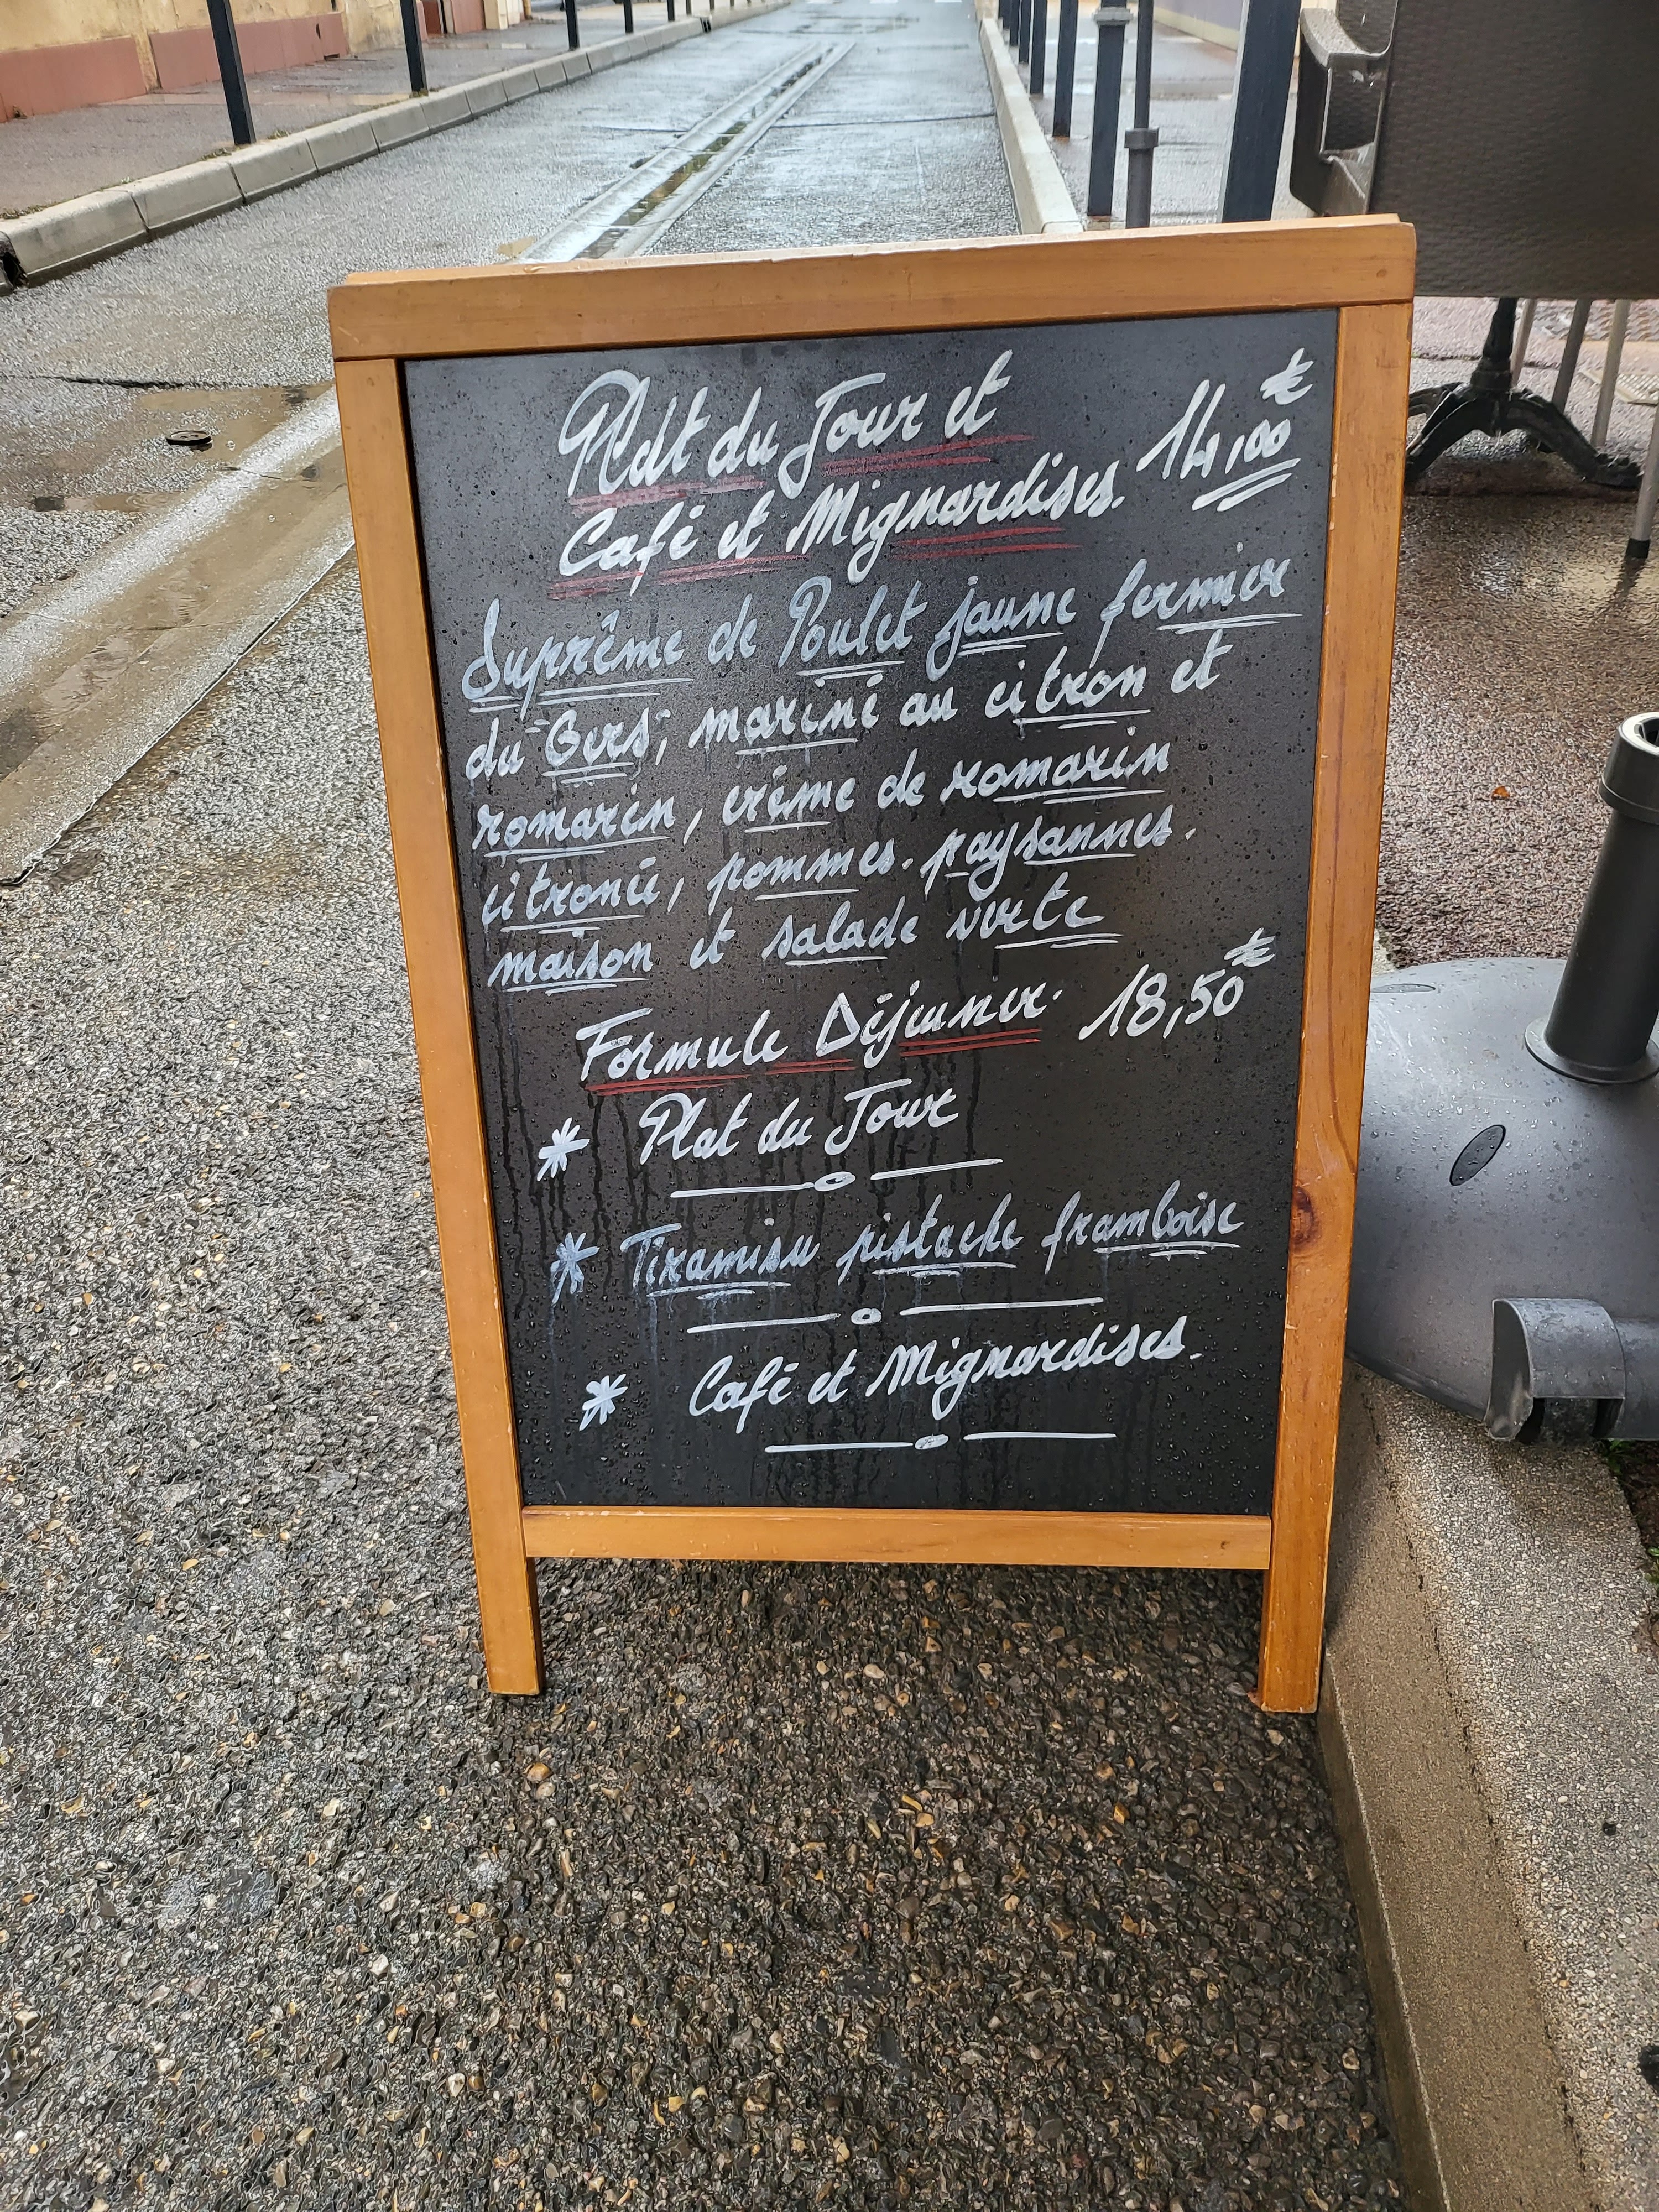 Plat du Jour et
Café et Mignardises. 14,00€
Suprême de Poulet jaune fermier
du "Gers", mariné au citron et
romarin, crème de romarin
citronée, pommes paysannes
maison et salade verte
Formule Déjeuner. 18,50€
* Plat du Jour
* Tiramisu pistache framboise
* Café et Mignardises.